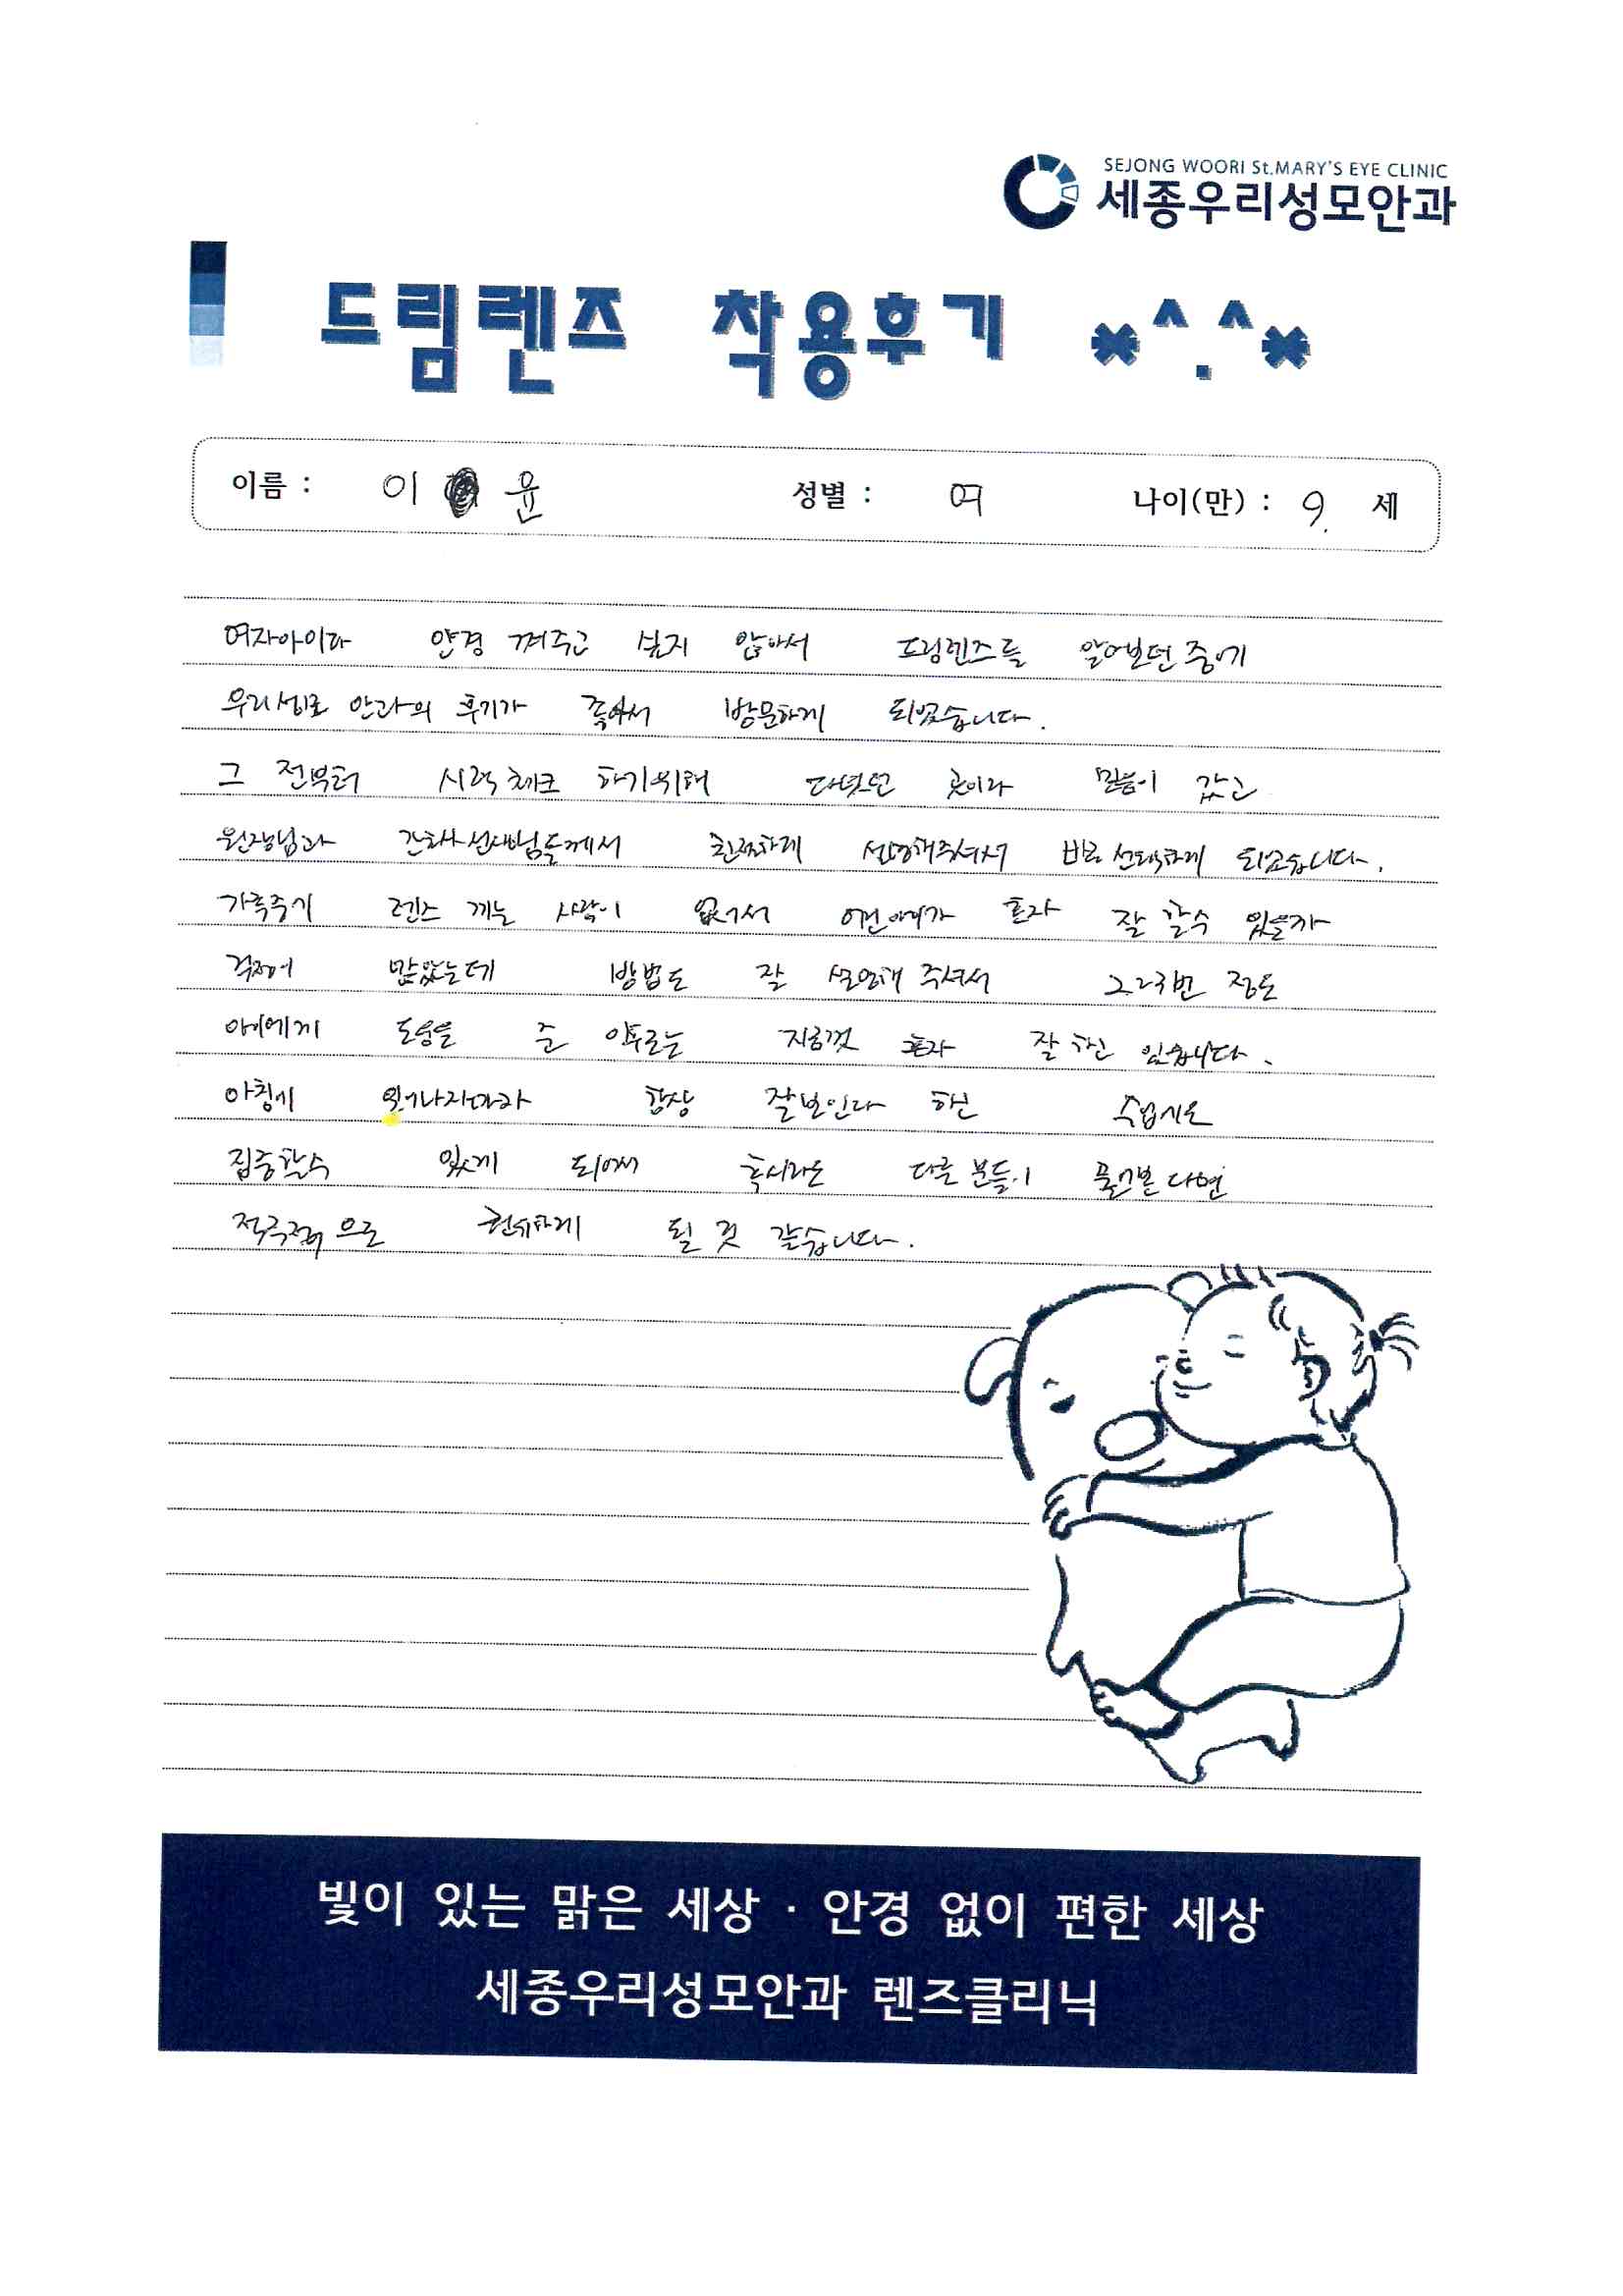 SEJONG WOORI St.MARY'S EYE CLINIC
세종우리성모안과
드림렌즈 착용후기 *^.^*
이름 : 이 윤 성별 : 여 나이(만) : 9. 세
여자아이다 안경 껴주고 싶지 않아서 드림렌즈를 알아보던 중에
우리성모 안과의 후기가 좋아서 방문하게 되었습니다.
그 전부터 시력체크 하기위해 다녔던 곳이라 믿음이 갔고
원장님과 간호사선생님들께서 친절하게 설명해주셔서 바로 선택하게 되었습니다.
가족중에 렌즈 끼는 사람이 없어서 어린아이가 혼자 잘 할수 있을까
걱정이 많았는데 방법도 잘 설명해 주셔서 2~3번 정도
아이에게 도움을 준 이후로는 지금껏 혼자 잘 하고 있습니다.
아침에 일어나자마자 항상 잘보인다 하고 수업시간
집중할수 있게 되어서 혹시라도 다른 분들이 물어본다면
적극적으로 권유하게 될 것 같습니다.
빛이 있는 맑은 세상 · 안경 없이 편한 세상
세종우리성모안과 렌즈클리닉